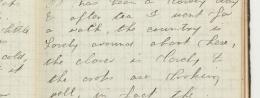 It has been a lovely day
& after tea I went for
a walk, the country is
lovely around about here,
the clover is lovely &
the crops are looking
well, in fact the